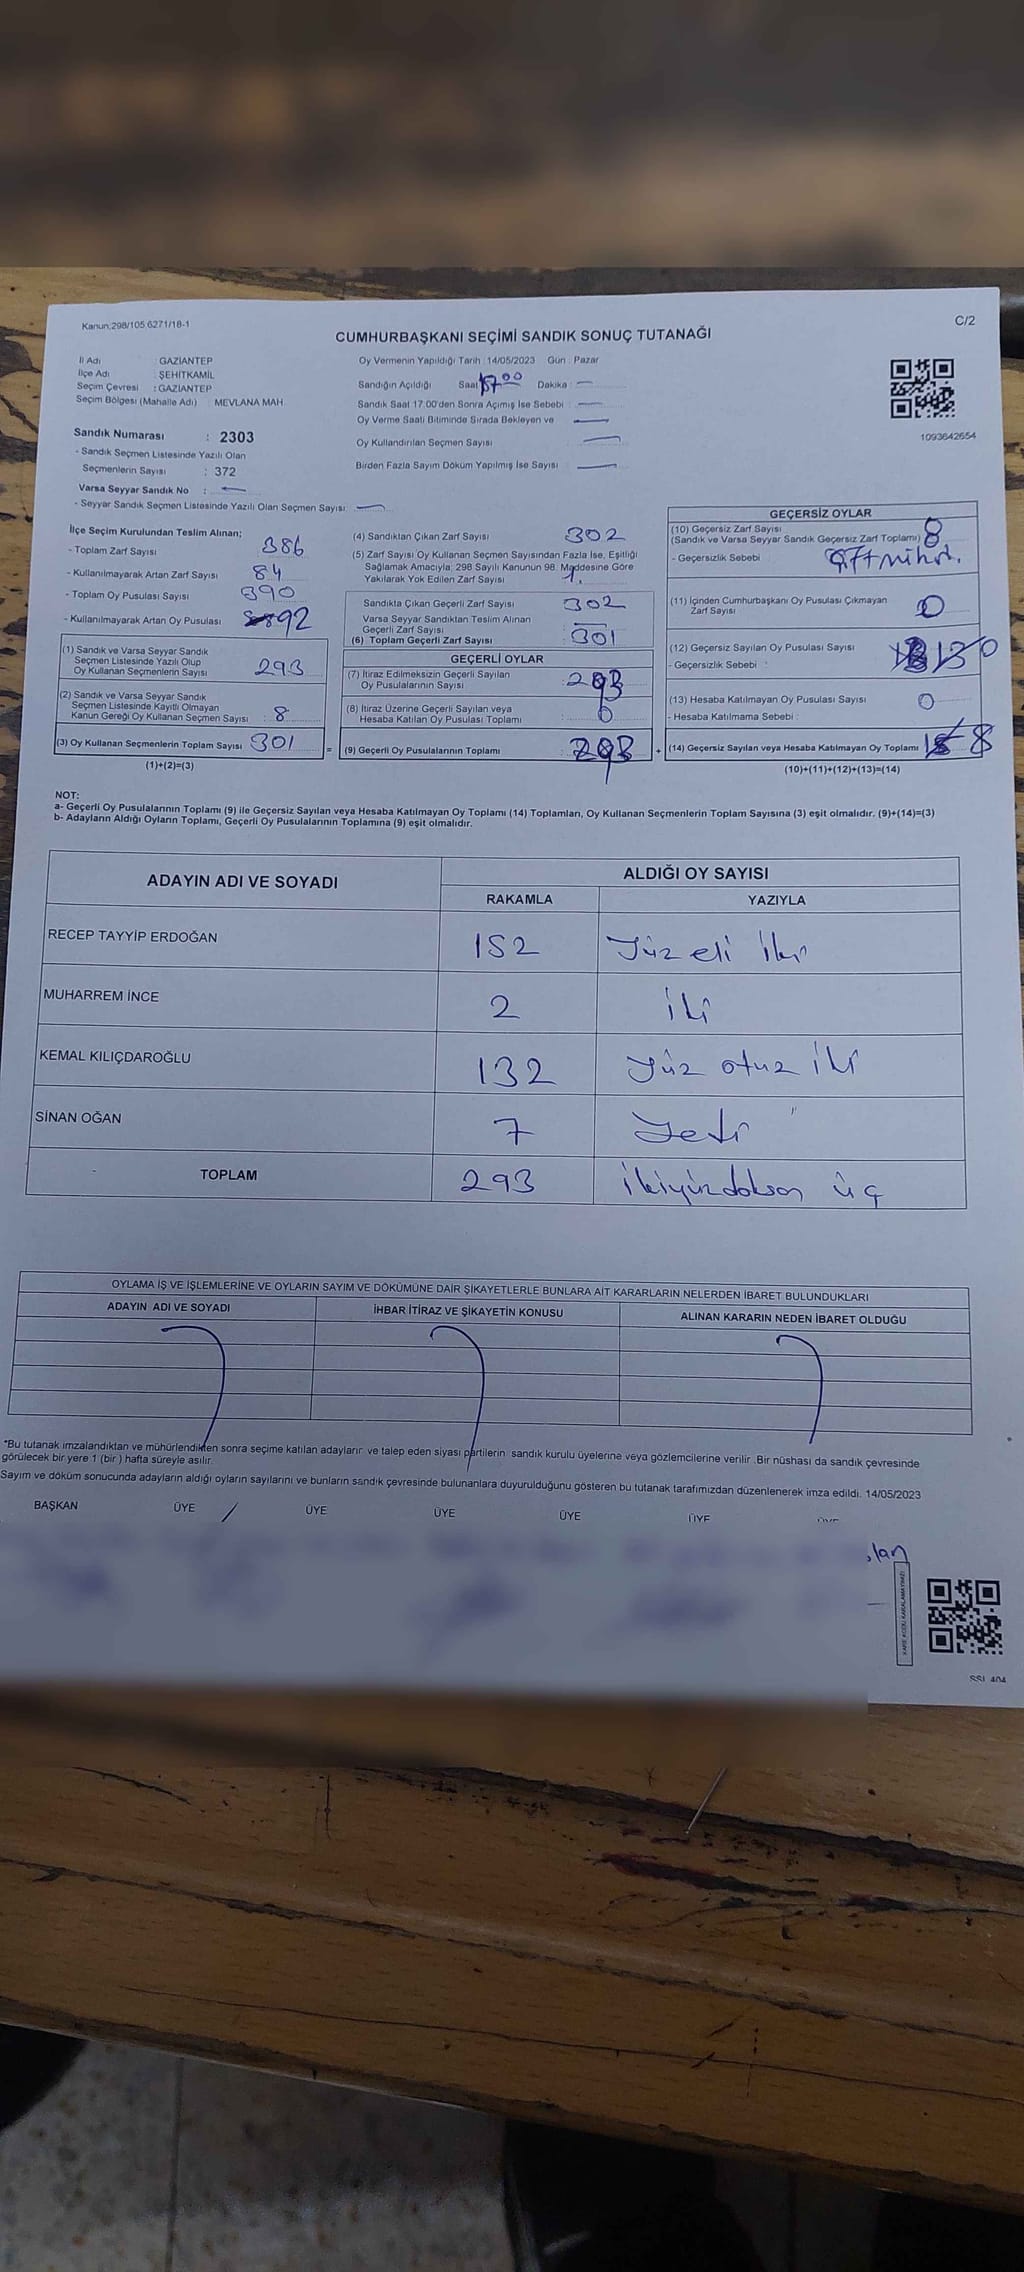 Kanun:298/105 6271/18-1
C/2
CUMHURBAŞKANI SEÇİMİ SANDIK SONUÇ TUTANAĞI
İl Adı : GAZİANTEP
İlçe Adı : ŞEHİTKAMİL
Seçim Çevresi : GAZİANTEP
Seçim Bölgesi (Mahalle Adı) : MEVLANA MAH.
Oy Vermenin Yapıldığı Tarih : 14/05/2023 Gün : Pazar
Sandığın Açıldığı Saat 17 00 Dakika : —
Sandık Saat 17:00'den Sonra Açımış İse Sebebi : —
Oy Verme Saati Bitiminde Sırada Bekleyen ve —
Oy Kullandırılan Seçmen Sayısı —
Birden Fazla Sayım Döküm Yapılmış İse Sayısı —
1093642654
Sandık Numarası : 2303
- Sandık Seçmen Listesinde Yazılı Olan
Seçmenlerin Sayısı : 372
Varsa Seyyar Sandık No : —
- Seyyar Sandık Seçmen Listesinde Yazılı Olan Seçmen Sayısı : —
İlçe Seçim Kurulundan Teslim Alınan;
- Toplam Zarf Sayısı 386
- Kullanılmayarak Artan Zarf Sayısı 84
- Toplam Oy Pusulası Sayısı 390
- Kullanılmayarak Artan Oy Pusulası 92
(1) Sandık ve Varsa Seyyar Sandık
Seçmen Listesinde Yazılı Olup
Oy Kullanan Seçmenlerin Sayısı 293
(2) Sandık ve Varsa Seyyar Sandık
Seçmen Listesinde Kayıtlı Olmayan
Kanun Gereği Oy Kullanan Seçmen Sayısı : 8
(3) Oy Kullanan Seçmenlerin Toplam Sayısı 301
(1)+(2)=(3)
(4) Sandıktan Çıkan Zarf Sayısı 302
(5) Zarf Sayısı Oy Kullanan Seçmen Sayısından Fazla İse, Eşitliği
Sağlamak Amacıyla; 298 Sayılı Kanunun 98. Maddesine Göre
Yakılarak Yok Edilen Zarf Sayısı 1
Sandıkta Çıkan Geçerli Zarf Sayısı 302
Varsa Seyyar Sandıktan Teslim Alınan
Geçerli Zarf Sayısı —
(6) Toplam Geçerli Zarf Sayısı 301
GEÇERLİ OYLAR
(7) İtiraz Edilmeksizin Geçerli Sayılan
Oy Pusulalarının Sayısı : 293
(8) İtiraz Üzerine Geçerli Sayılan veya
Hesaba Katılan Oy Pusulası Toplamı : 0
=
(9) Geçerli Oy Pusulalarının Toplamı : 293
+
GEÇERSİZ OYLAR
(10) Geçersiz Zarf Sayısı
(Sandık ve Varsa Seyyar Sandık Geçersiz Zarf Toplamı) 8
- Geçersizlik Sebebi
(11) İçinden Cumhurbaşkanı Oy Pusulası Çıkmayan
Zarf Sayısı 0
(12) Geçersiz Sayılan Oy Pusulası Sayısı 0
- Geçersizlik Sebebi :
(13) Hesaba Katılmayan Oy Pusulası Sayısı 0
- Hesaba Katılmama Sebebi :
(14) Geçersiz Sayılan veya Hesaba Katılmayan Oy Toplamı 8
(10)+(11)+(12)+(13)=(14)
NOT:
a- Geçerli Oy Pusulalarının Toplamı (9) ile Geçersiz Sayılan veya Hesaba Katılmayan Oy Toplamı (14) Toplamları, Oy Kullanan Seçmenlerin Toplam Sayısına (3) eşit olmalıdır. (9)+(14)=(3)
b- Adayların Aldığı Oyların Toplamı, Geçerli Oy Pusulalarının Toplamına (9) eşit olmalıdır.
ADAYIN ADI VE SOYADI
ALDIĞI OY SAYISI
RAKAMLA YAZIYLA
RECEP TAYYİP ERDOĞAN 152 Yüz eli iki
MUHARREM İNCE 2 iki
KEMAL KILIÇDAROĞLU 132 Yüz otuz iki
SİNAN OĞAN 7 Yedi
TOPLAM 293 ikiyüzdoksan üç
OYLAMA İŞ VE İŞLEMLERİNE VE OYLARIN SAYIM VE DÖKÜMÜNE DAİR ŞİKAYETLERLE BUNLARA AİT KARARLARIN NELERDEN İBARET BULUNDUKLARI
ADAYIN ADI VE SOYADI İHBAR İTİRAZ VE ŞİKAYETİN KONUSU ALINAN KARARIN NEDEN İBARET OLDUĞU
*Bu tutanak imzalandıktan ve mühürlendikten sonra seçime katılan adayların ve talep eden siyasi partilerin sandık kurulu üyelerine veya gözlemcilerine verilir. Bir nüshası da sandık çevresinde
görülecek bir yere 1 (bir) hafta süreyle asılır.
Sayım ve döküm sonucunda adayların aldığı oyların sayılarını ve bunların sandık çevresinde bulunanlara duyurulduğunu gösteren bu tutanak tarafımızdan düzenlenerek imza edildi. 14/05/2023
BAŞKAN ÜYE ÜYE ÜYE ÜYE ÜYE
KARE KODU KARALAMAYINIZ!